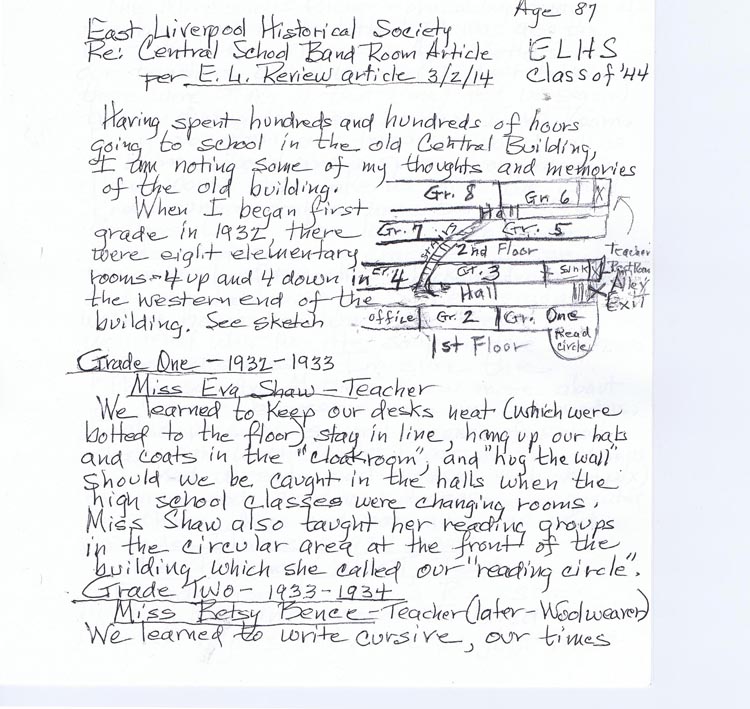 Age 87
East Liverpool Historical Society
Re: Central School Band Room Article
per E. L. Review article 3/2/14
ELHS
Class of '44
Having spent hundreds and hundreds of hours
going to school in the old Central Building,
I am noting some of my thoughts and memories
of the old building.
When I began first
grade in 1932, there
were eight elementary
rooms - 4 up and 4 down in
the western end of the
building. See sketch
Gr. 8
Gr. 6
X
Hall
Gr. 7
Stairs
Gr. 5
2nd Floor
Teacher
Rest Room
Gr. 4
Gr. 3
Sink
X
Alley
Exit
Hall
office
Gr. 2
Gr. One
Read
circle
1st Floor
Grade One - 1932-1933
Miss Eva Shaw - Teacher
We learned to keep our desks neat (which were
botted to the floor) stay in line, hang up our hats
and coats in the "cloakroom", and "hug the wall"
should we be caught in the halls when the
high school classes were changing rooms.
Miss Shaw also taught her reading groups
in the circular area at the front of the
building which she called our "reading circle".
Grade Two - 1933-1934
Miss Betsy Bence - Teacher (later - Woolweaver)
We learned to write cursive, our times